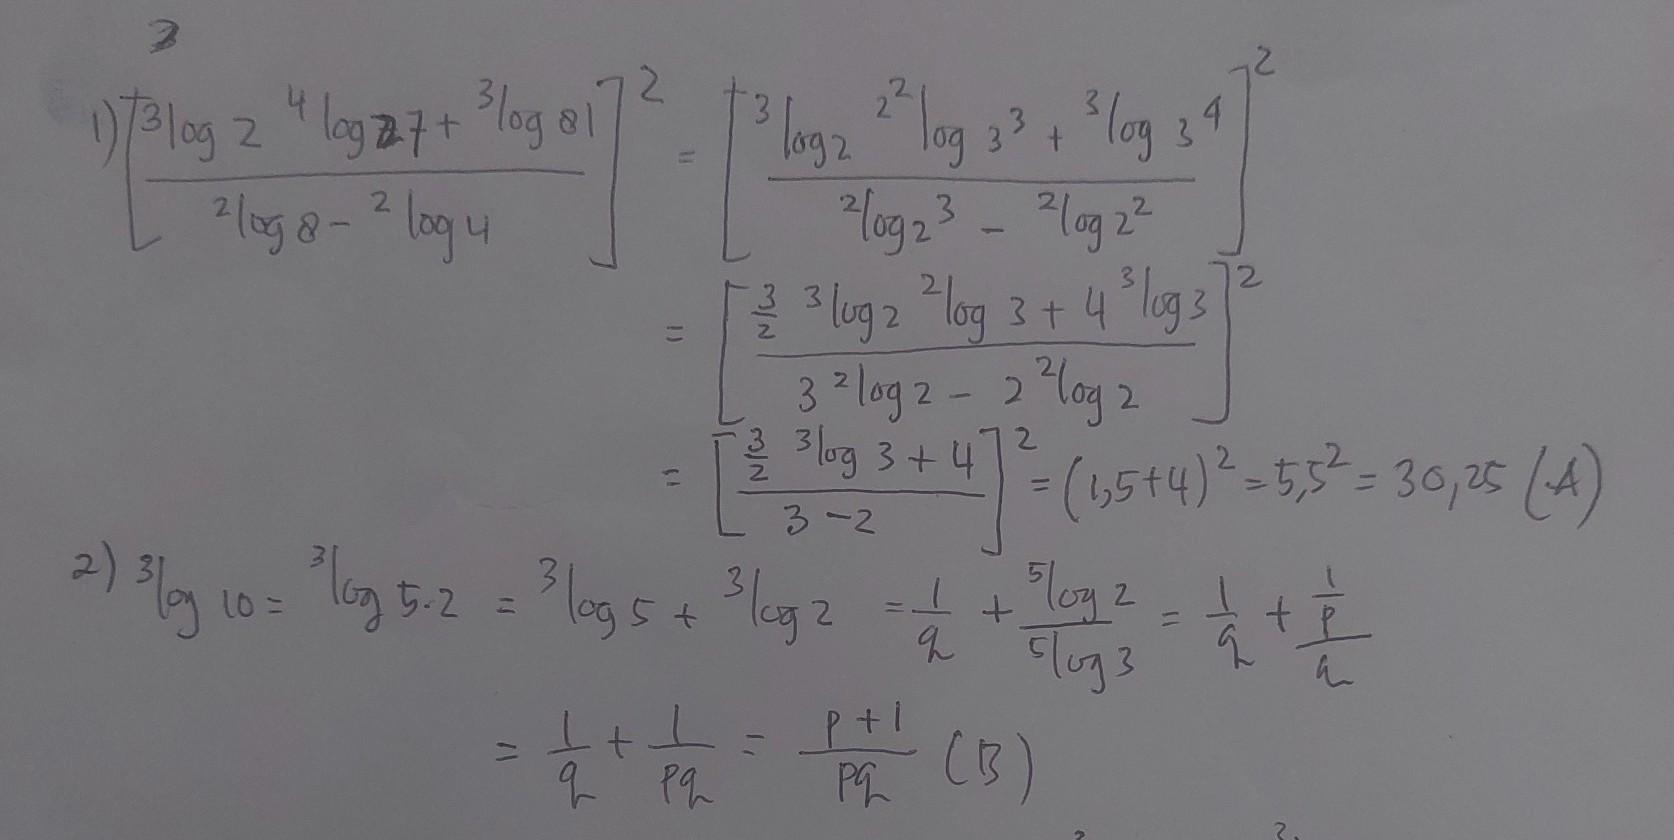 3
1) [³log 2 ⁴log 27 + ³log 81 / ²log 8 - ²log 4]² = [³log 2 ²^²log 3³ + ³log 3⁴ / ²log 2³ - ²log 2²]²
= [3/2 ³log 2 ²log 3 + 4 ³log 3 / 3 ²log 2 - 2 ²log 2]²
= [3/2 ³log 3 + 4 / 3 - 2]² = (1,5+4)² = 5,5² = 30,25 (A)
2) ³log 10 = ³log 5.2 = ³log 5 + ³log 2 = 1/q + ⁵log 2 / ⁵log 3 = 1/q + 1/p / q
= 1/q + 1/pq = p+1 / pq (B)